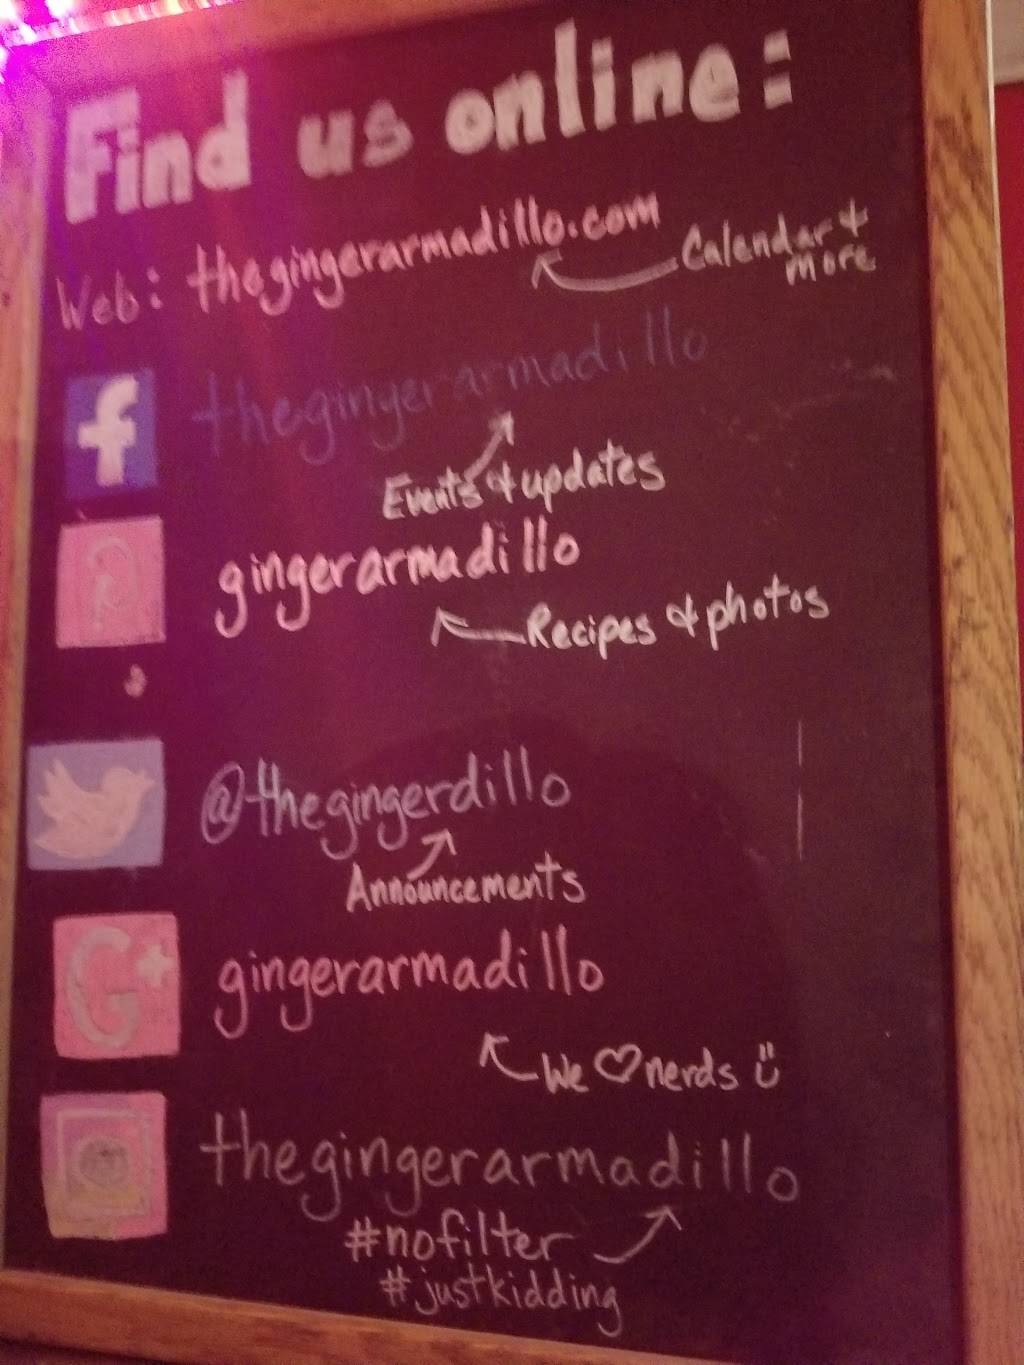 Find us online:
Web: thegingerarmadillo.com
Calendar &
more
f thegingerarmadillo
Events & updates
gingerarmadillo
Recipes & photos
@thegingerdillo
Announcements
G+ gingerarmadillo
We ♡ nerds Ü
thegingerarmadillo
#nofilter
#justkidding